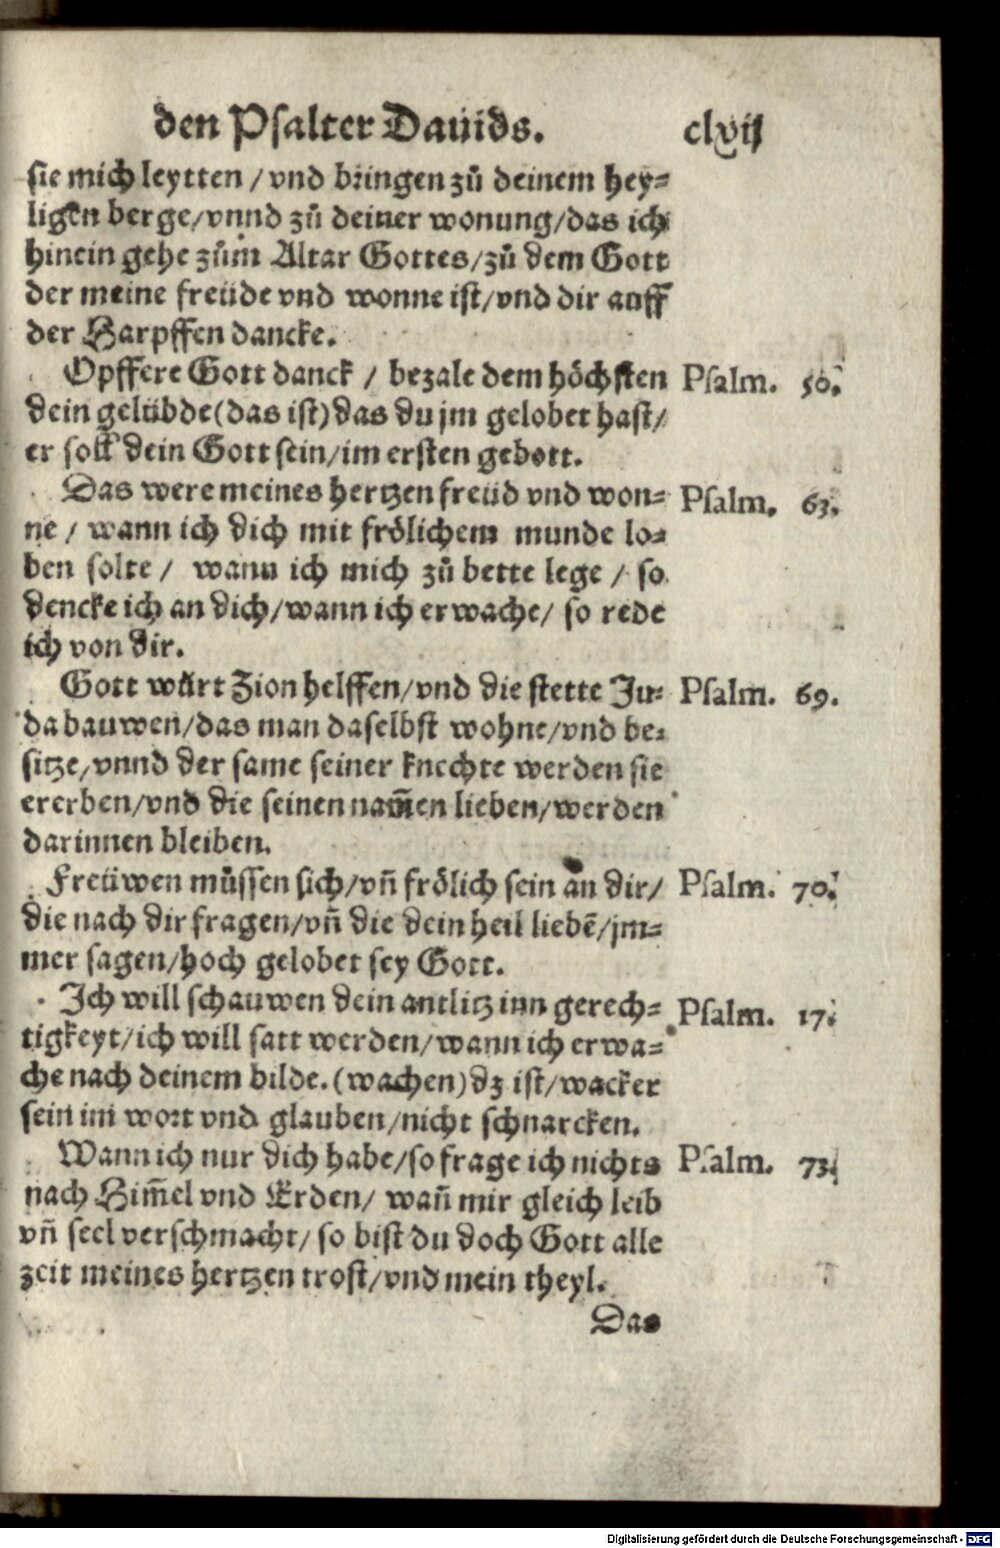 den Psalter Dauids. clvij
sie mich leytten / vnd bringen zů deinem hey-
ligen berge/vnnd zů deiner wonung/das ich
hinein gehe zům Altar Gottes/zů dem Gott
der meine freüde vnd wonne ist/vnd dir auff
der Harpffen dancke.
Opffere Gott danck / bezale dem höchsten Psalm. 50.
dein gelübde(das ist)das du jm gelobet hast/
er soll dein Gott sein/im ersten gebott.
Das were meines hertzen freüd vnd won- Psalm. 63.
ne / wann ich dich mit frölichem munde lo-
ben solte / wann ich mich zů bette lege / so
dencke ich an dich/wann ich erwache/ so rede
ich von dir.
Gott würt Zion helffen/vnd die stette Ju- Psalm. 69.
da bauwen/das man daselbst wohne/vnd be-
sitze/vnnd der same seiner knechte werden sie
ererben/vnd die seinen nam̃en lieben/werden
darinnen bleiben.
Freüwen müssen sich/vñ frölich sein an dir/ Psalm. 70.
die nach dir fragen/vñ die dein heil liebẽ/jm-
mer sagen/hoch gelobet sey Gott.
Ich will schauwen dein antlitz inn gerech- Psalm. 17.
tigkeyt/ich will satt werden/wann ich erwa-
che nach deinem bilde.(wachen)dz ist/wacker
sein im wort vnd glauben/nicht schnarcken.
Wann ich nur dich habe/so frage ich nichts Psalm. 73.
nach Him̃el vnd Erden/ wañ mir gleich leib
vñ seel verschmacht/ so bist du doch Gott alle
zeit meines hertzen trost/vnd mein theyl.
Das
Digitalisierung gefördert durch die Deutsche Forschungsgemeinschaft - DFG